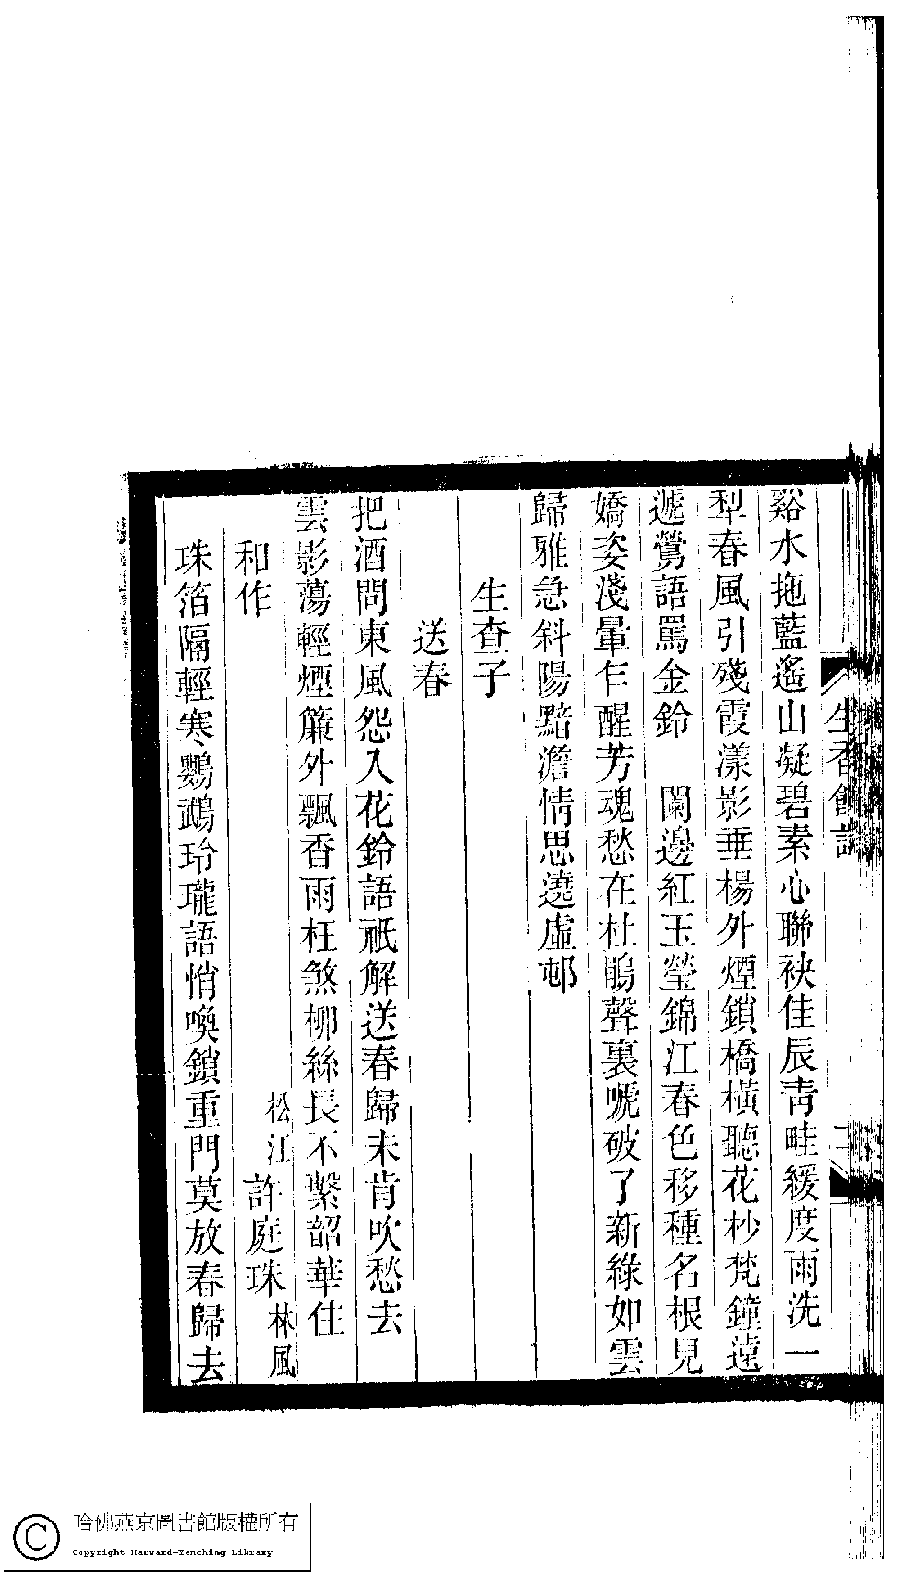 生香館詞
谿水拖藍遙山凝碧素心聯袂佳辰靑畦緩度雨洗一
犁春風引殘霞漾影垂楊外煙鎖橋橫聽花杪梵鐘遠
遞鶯語罵金鈴　闌邊紅玉瑩錦江春色移種名根見
嬌姿淺暈乍醒芳魂愁在杜鵑聲裏唬破了新綠如雲
歸雅急斜陽黯澹情思遶虛邨
生查子
送春
把酒問東風怨入花鈴語祗解送春歸未肯吹愁去
雲影蕩輕煙簾外飄香雨枉煞柳絲長不繫韶華住
和作
松江許庭珠林風
珠箔隔輕寒鸚鵡玲瓏語悄喚鎖重門莫放春歸去
哈佛燕京圖書館版權所有
Copyright Harvard-Yenching Library